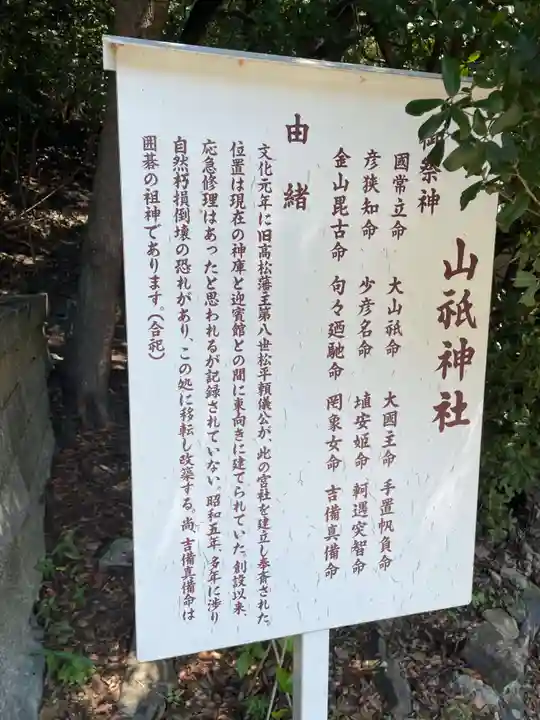 山祇神社
御祭神
国常立命 大山祇命 大國主命 手置帆負命
彦狭知命 少彦名命 埴安姫命 軻遇突智命
金山毘古命 句々廼馳命 罔象女命 吉備真備命
由緒
文化元年に旧高松藩主第八世松平頼儀公が、此の宮社を建立し奉斎された。
位置は現在の神庫と迎賓館との間に東向きに建てられていた。創設以来、
応急修理はあったと思われるが記録されていない。昭和五年、多年に渉り
自然朽損倒壊の恐れがあり、この処に移転し改築する。尚、吉備真備命は
囲碁の祖神であります。（合祀）